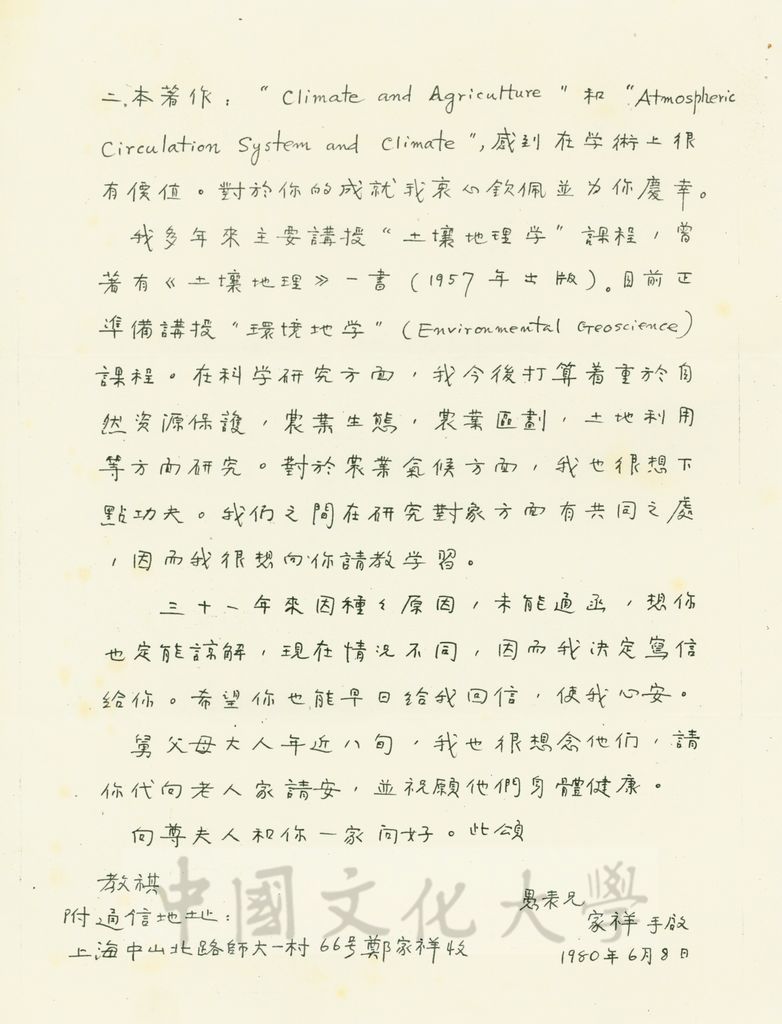 二本著作：“Climate and Agriculture”和“Atmospheric
Circulation System and Climate”,感到在学術上很
有價值。對於你的成就我衷心欽佩並为你慶幸。
我多年來主要講授“土壤地理学”課程，曾
著有《土壤地理》一書(1957年出版)。目前正
準備講授“環境地学”(Environmental Geoscience)
課程。在科学研究方面，我今後打算着重於自
然资源保護，農業生態，農業區劃，土地利用
等方面研究。對於農業氣候方面，我也很想下
點功夫。我们之間在研究對象方面有共同之處
，因而我很想向你請教学習。
三十一年來因種々原因，未能通函，想你
也定能諒解，現在情况不同，因而我决定寫信
給你。希望你也能早日給我回信，使我心安。
舅父母大人年近八旬，我也很想念他们，請
你代向老人家請安，並祝願他們身體健康。
向尊夫人和你一家问好。此頌
教祺
愚表兄
家祥手啟
1980年6月8日
附通信地址：
上海中山北路師大一村66号鄭家祥收
中國文化大學